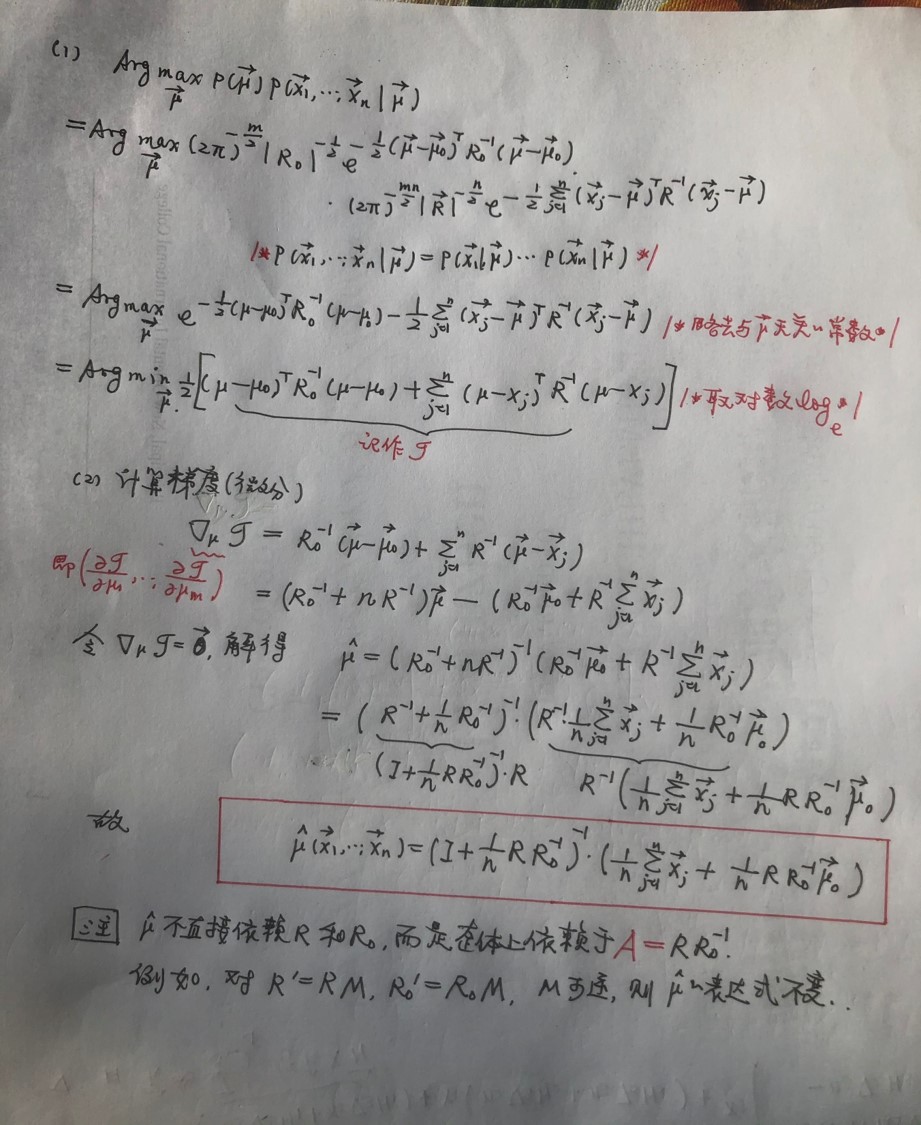 (1) Arg max_μ⃗ P(μ⃗) P(x⃗₁,…,x⃗ₙ | μ⃗)
= Arg max_μ⃗ (2π)^{-m/2} |R₀|^{-1/2} e^{-1/2 (μ⃗-μ⃗₀)ᵀ R₀⁻¹ (μ⃗-μ⃗₀)}.
· (2π)^{-mn/2} |R⃗|^{-n/2} e^{-1/2 Σ_{j=1}^n (x⃗ⱼ-μ⃗)ᵀ R⁻¹ (x⃗ⱼ-μ⃗)}
/* P(x⃗₁,…,x⃗ₙ | μ⃗) = P(x⃗₁|μ⃗) ⋯ P(x⃗ₙ | μ⃗) */
= Arg max_μ⃗ e^{-1/2 (μ-μ₀)ᵀ R₀⁻¹ (μ-μ₀) - 1/2 Σ_{j=1}^n (x⃗ⱼ-μ⃗)ᵀ R⁻¹ (x⃗ⱼ-μ⃗)} /* 略去与μ⃗无关的常数 */
= Arg min_μ⃗ 1/2 [(μ-μ₀)ᵀ R₀⁻¹ (μ-μ₀) + Σ_{j=1}^n (μ-xⱼ)ᵀ R⁻¹ (μ-xⱼ)] /* 取对数 logₑ */
记作 J
(2) 计算梯度(微分)
∇_μ J = R₀⁻¹ (μ⃗-μ⃗₀) + Σ_{j=1}^n R⁻¹ (μ⃗-x⃗ⱼ)
即 (∂J/∂μ₁,…,∂J/∂μₘ)
= (R₀⁻¹ + nR⁻¹) μ⃗ — (R₀⁻¹ μ⃗₀ + R⁻¹ Σ_{j=1}^n x⃗ⱼ)
令 ∇_μ J = 0⃗, 解得 μ̂ = (R₀⁻¹ + nR⁻¹)⁻¹ (R₀⁻¹ μ⃗₀ + R⁻¹ Σ_{j=1}^n x⃗ⱼ)
= (R⁻¹ + 1/n R₀⁻¹)⁻¹ · (R⁻¹ · 1/n Σ_{j=1}^n x⃗ⱼ + 1/n R₀⁻¹ μ⃗₀)
(I + 1/n R R₀⁻¹)⁻¹ · R R⁻¹ (1/n Σ_{j=1}^n x⃗ⱼ + 1/n R R₀⁻¹ μ⃗₀)
故
μ̂(x⃗₁,…,x⃗ₙ) = (I + 1/n R R₀⁻¹)⁻¹ · (1/n Σ_{j=1}^n x⃗ⱼ + 1/n R R₀⁻¹ μ⃗₀)
注 μ̂ 不直接依赖 R 和 R₀, 而是整体上依赖于 A = R R₀⁻¹.
例如, 对 R′ = RM, R₀′ = R₀M, M可逆, 则 μ̂ 的表达式不变.